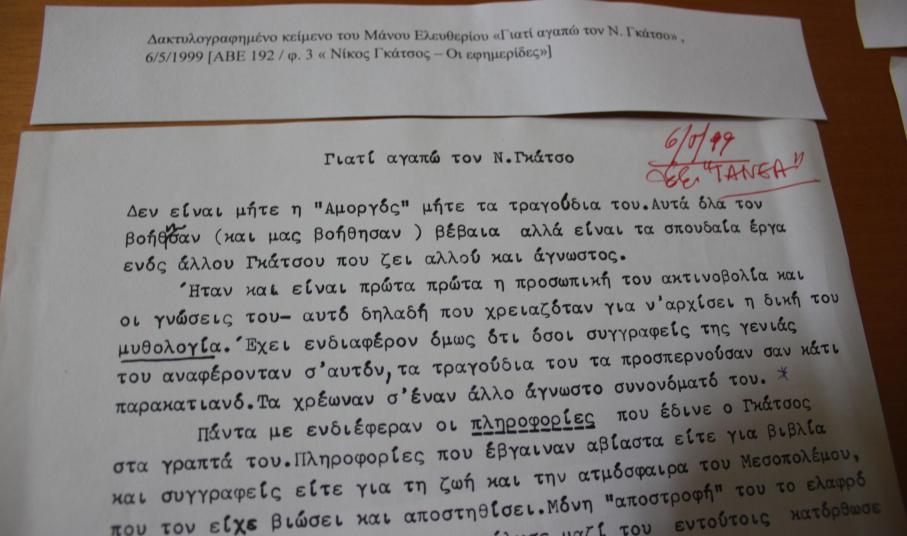 Δακτυλογραφημένο κείμενο του Μάνου Ελευθερίου «Γιατί αγαπώ τον Ν. Γκάτσο» ,
6/5/1999 [ABE 192 / φ. 3 « Νίκος Γκάτσος – Οι εφημερίδες»]
6/5/99
"ΤΑΝΕΑ"
Γιατί αγαπώ τον Ν.Γκάτσο
Δεν είναι μήτε η "Αμοργός" μήτε τα τραγούδια του.Αυτά όλα τον
βοήθησαν (και μας βοήθησαν ) βέβαια αλλά είναι τα σπουδαία έργα
ενός άλλου Γκάτσου που ζει αλλού και άγνωστος.
Ήταν και είναι πρώτα πρώτα η προσωπική του ακτινοβολία και
οι γνώσεις του- αυτό δηλαδή που χρειαζόταν για ν'αρχίσει η δική του
μυθολογία. Έχει ενδιαφέρον όμως ότι όσοι συγγραφείς της γενιάς
του αναφέρονταν σ'αυτόν,τα τραγούδια του τα προσπερνούσαν σαν κάτι
παρακατιανό.Τα χρέωναν σ'έναν άλλο άγνωστο συνονόματό του. *
Πάντα με ενδιέφεραν οι πληροφορίες που έδινε ο Γκάτσος
στα γραπτά του.Πληροφορίες που έβγαιναν αβίαστα είτε για βιβλία
και συγγραφείς είτε για τη ζωή και την ατμόσφαιρα του Μεσοπολέμου,
που τον είχε βιώσει και αποστηθίσει.Μόνη "αποστροφή" του το ελαφρό
μαζί του εντούτοις κατόρθωσε